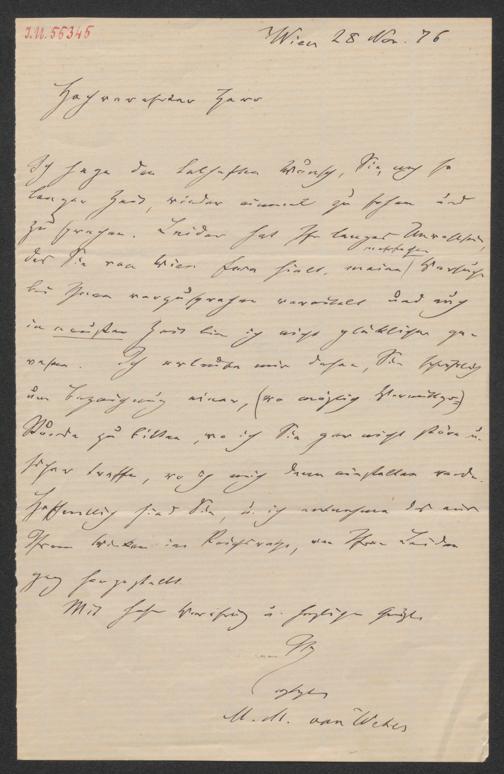 I.N. 55345
Wien 28 Nov. 76
Hochverehrter Herr
Ich hege den lebhaften Wunsch, Sie, nach so
langer Zeit, wieder einmal zu sehen und
zu sprechen. Leider hat Ihr langes Unwohlsein,
das Sie von Wien fern hielt, meine mehrfachen Versuche
bei Ihnen vorzusprechen vereitelt und auch
in neuester Zeit bin ich nicht glücklicher ge-
wesen. Ich erlaube mir daher, Sie
um Bezeichnung einer, (wo möglich Vormittags=)
Stunde zu bitten, wo ich Sie gar nicht störe u.
sicher treffe, wo ich mich dann einstellen werde.
Hoffentlich sind Sie, u. ich entnehme das aus
Ihrem Wirken im Reichsrathe, von Ihrem Leiden
ganz hergestellt
Mit hoher Verehrung u. herzlichem Gruße
Ihr
ergebner
M. M. von Weber